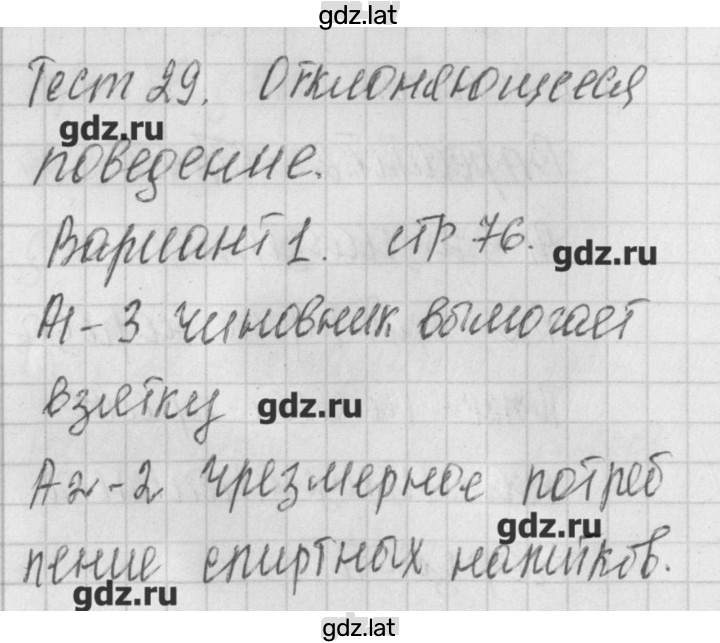 gdz.lat
Тест 29. Отклоняющееся
gdz.ru
поведение.
Вариант 1. стр 76.
gdz.ru
А1-3 чиновник вымогает
взятку gdz.ru
А2-2 чрезмерное потреб
gdz.ru
ление спиртных напитков.
gdz.ru
gdz.lat